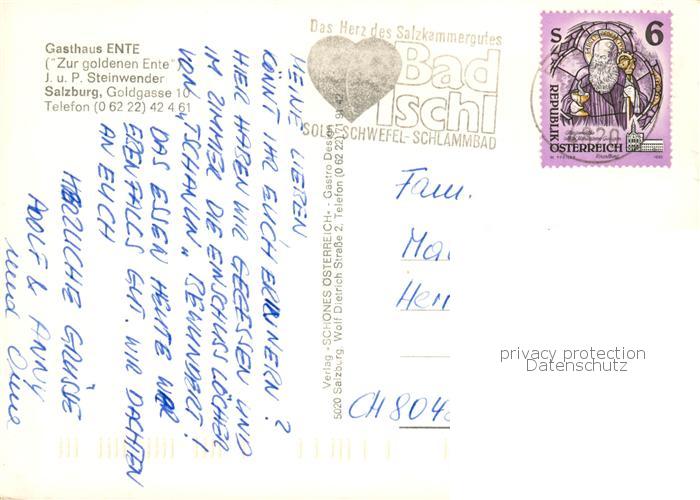 Gasthaus ENTE
("Zur goldenen Ente")
J. u. P. Steinwender
Salzburg, Goldgasse 10
Telefon (0 62 22) 42 4 61
Das Herz des Salzkammergutes
Bad
Ischl
SOLE-SCHWEFEL-SCHLAMMBAD
S 6
REPUBLIK
ÖSTERREICH
MEINE LIEBEN,
KÖNNT IHR EUCH ERINNERN?
HIER HABEN WIR GEGESSEN UND
IM ZIMMER DIE EINSCHUSSLÖCHER
VON "TSCHANUN" BEWUNDERT!
DAS ESSEN HEUTE WAR
EBENFALLS GUT. WIR DACHTEN
AN EUCH
HERZLICHE GRÜSSE
ADOLF & ANNY
und
Verlag »SCHÖNES ÖSTERREICH« - Gastro Design
5020 Salzburg, Wolf Dietrich Straße 2, Telefon (0 62 22) 71 9
Fam.
Mai
Herr
CH 8048
privacy protection
Datenschutz